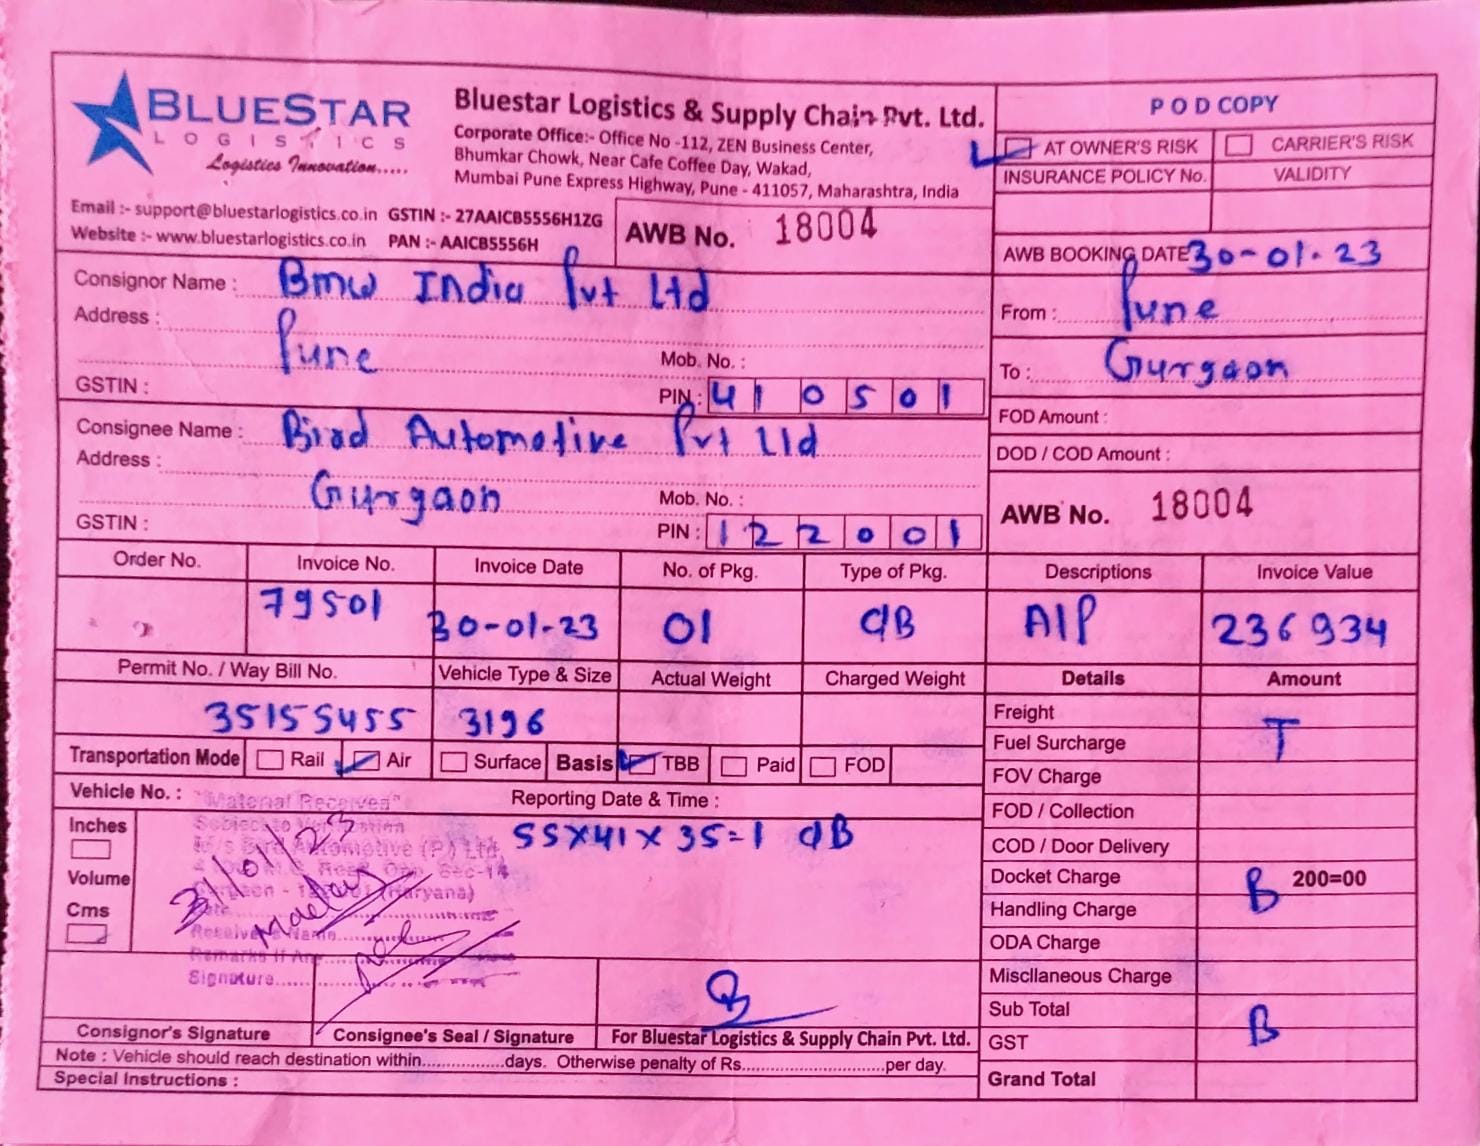 BLUESTAR
LOGISTICS
Logistics Innovation.....
Bluestar Logistics & Supply Chain Pvt. Ltd.
Corporate Office:- Office No -112, ZEN Business Center,
Bhumkar Chowk, Near Cafe Coffee Day, Wakad,
Mumbai Pune Express Highway, Pune - 411057, Maharashtra, India
Email :- support@bluestarlogistics.co.in GSTIN :- 27AAICB5556H1ZG
Website :- www.bluestarlogistics.co.in PAN :- AAICB5556H
AWB No. 18004
POD COPY
AT OWNER'S RISK CARRIER'S RISK
INSURANCE POLICY No. VALIDITY
AWB BOOKING DATE 30-01-23
From : Pune
To : Gurgaon
FOD Amount :
DOD / COD Amount :
AWB No. 18004
Consignor Name : Bmw India Pvt Ltd
Address :
Pune
Mob. No. :
GSTIN : PIN : 410501
Consignee Name : Bird Automotive Pvt Ltd
Address :
Gurgaon
Mob. No. :
GSTIN : PIN : 122001
Order No. Invoice No. Invoice Date No. of Pkg. Type of Pkg. Descriptions Invoice Value
79501 30-01-23 01 CB A/P 236934
Permit No. / Way Bill No. Vehicle Type & Size Actual Weight Charged Weight Details Amount
35155455 3196
Transportation Mode Rail Air Surface Basis TBB Paid FOD
Vehicle No. : Reporting Date & Time :
Inches
Volume
Cms
55x41x35=1 CB
"Material Received"
Subject to Verification
M/s Bird Automotive (P) Ltd.
Sec-14
Gurgaon - (Haryana)
Date
Receiver's Name
Remarks If Any
Signature
31/01/23
Freight
Fuel Surcharge T
FOV Charge
FOD / Collection
COD / Door Delivery
Docket Charge B 200=00
Handling Charge
ODA Charge
Miscllaneous Charge
Sub Total
GST B
Grand Total
Consignor's Signature Consignee's Seal / Signature For Bluestar Logistics & Supply Chain Pvt. Ltd.
Note : Vehicle should reach destination within................days. Otherwise penalty of Rs............................per day.
Special Instructions :